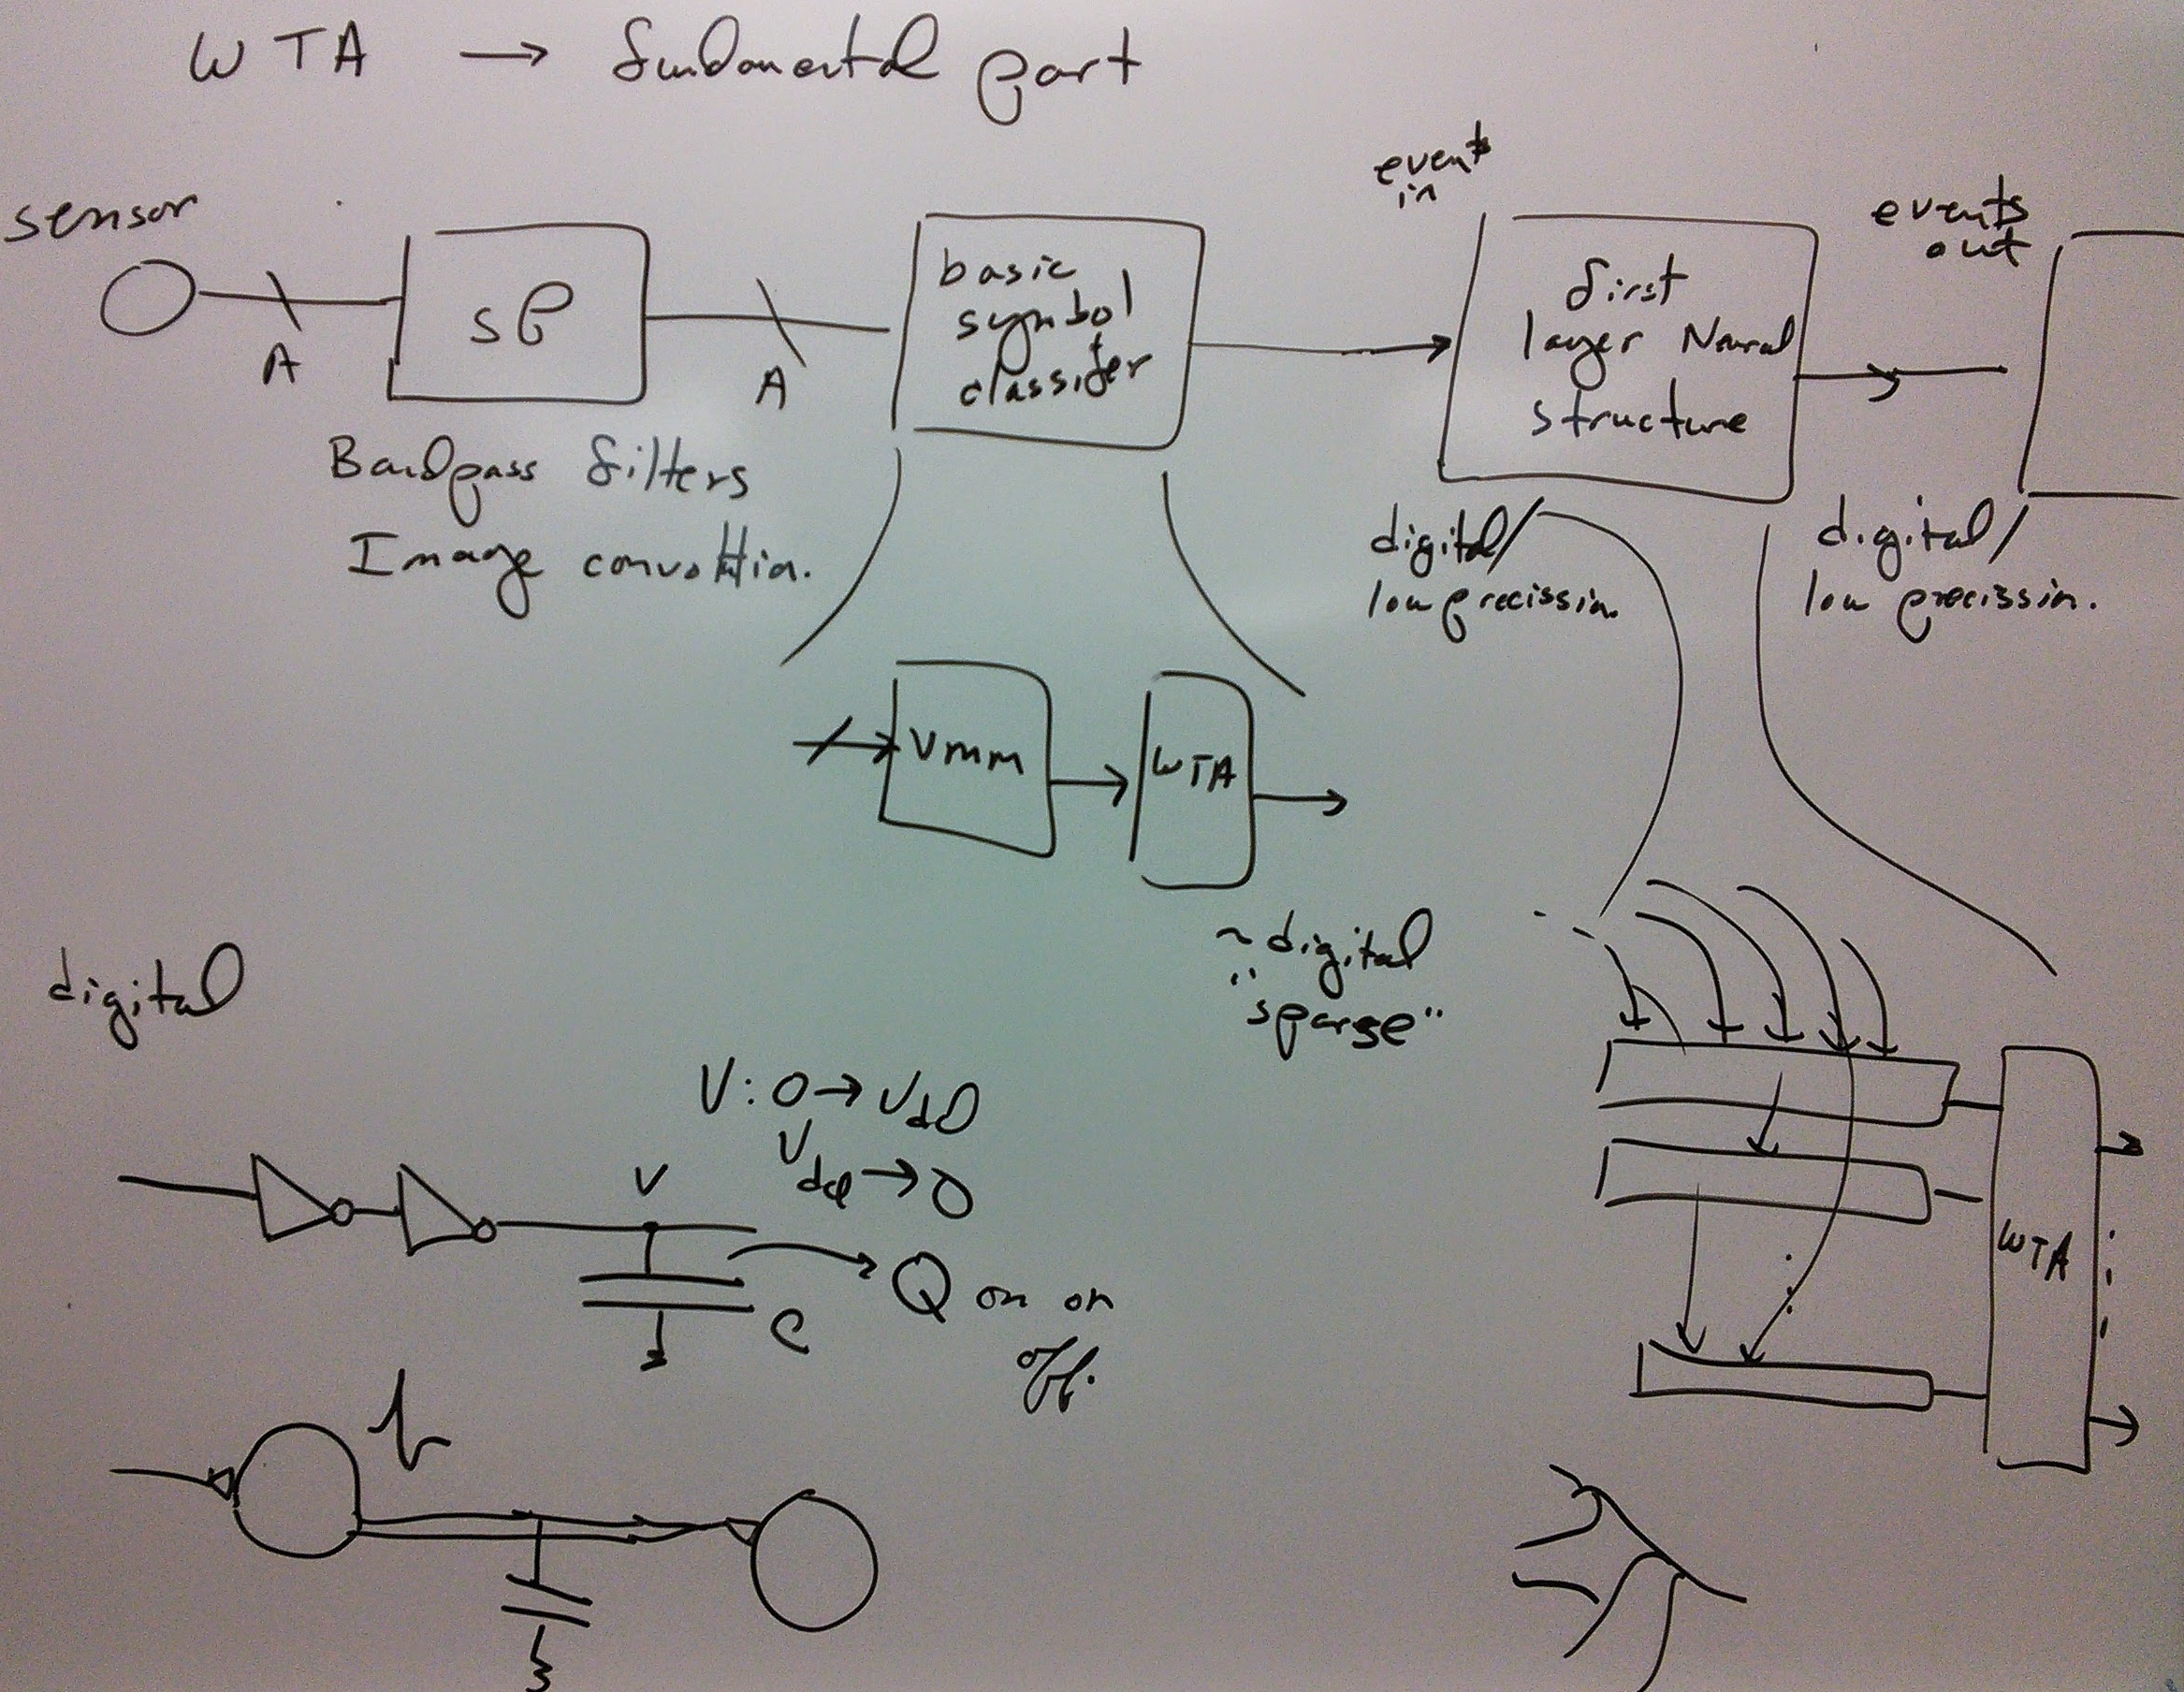 WTA → fundamental part
sensor
A
SP
A
Bandpass filters
Image convolution.
basic
symbol
classifer
events
in
first
layer Neural
structure
events
out
digital/
low precission.
digital/
low precission.
VMM
WTA
~digital
"sparse"
WTA
digital
V: 0 → Vdd
Vdd → 0
V
C
Q on or
off.